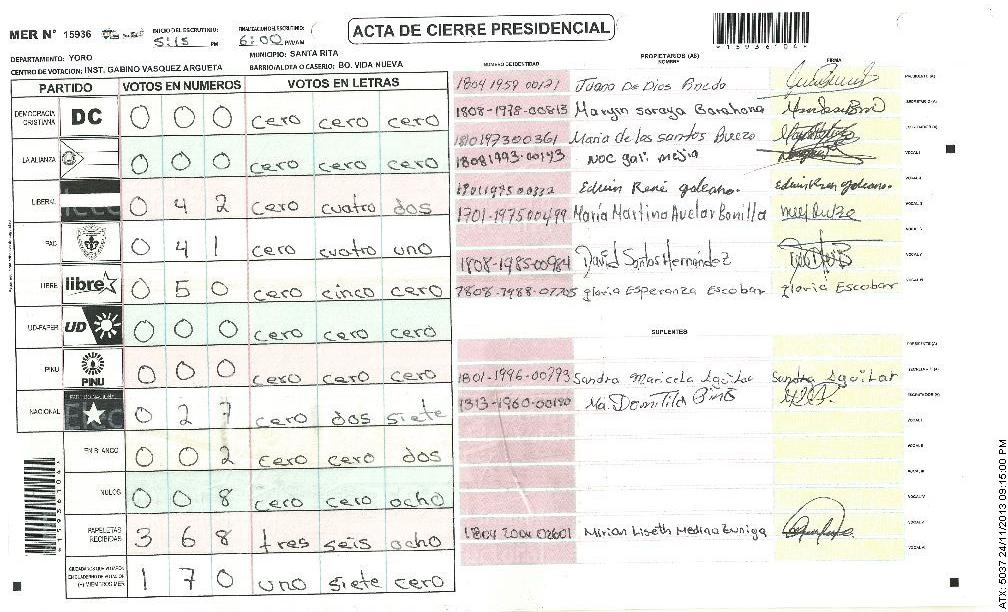 ACTA DE CIERRE PRESIDENCIAL
MER N° 15936
INICIO DEL ESCRUTINIO: 5:15 PM
FINALIZACION DEL ESCRUTINIO: 6:00 PM/AM
*15936104*
DEPARTAMENTO: YORO
MUNICIPIO: SANTA RITA
CENTRO DE VOTACION: INST. GABINO VASQUEZ ARGUETA
BARRIO/ALDEA O CASERIO: BO. VIDA NUEVA
PARTIDO VOTOS EN NUMEROS VOTOS EN LETRAS
DEMOCRACIA CRISTIANA DC 0 0 0 cero cero cero
LA ALIANZA 0 0 0 cero cero cero
LIBERAL 0 4 2 cero cuatro dos
PAC 0 4 1 cero cuatro uno
LIBRE libre 0 5 0 cero cinco cero
UD-FAPER UD 0 0 0 cero cero cero
PINU PINU 0 0 0 cero cero cero
NACIONAL 0 2 7 cero dos siete
EN BLANCO 0 0 2 cero cero dos
NULOS 0 0 8 cero cero ocho
PAPELETAS RECIBIDAS 3 6 8 tres seis ocho
1 7 0 uno siete cero
NUMERO DE IDENTIDAD PROPIETARIOS (AS) NOMBRE FIRMA
1804 1959 00121 Juana De Dios PRESIDENTE (A)
1808-1978-00813 Maryin Soraya Barahona SECRETARIO (A)
1810197300361 Maria de los santos ESCRUTADOR (A)
18081993-00193 mejia VOCAL I
Edwin René galeano. Edwin Rene galeano. VOCAL II
1701-197500499 María Martina Avelar Bonilla VOCAL III
1808-1985-00984 David Santos Hernández VOCAL V
gloria Esperanza Escobar gloria Escobar
SUPLENTES
PRESIDENTE (A)
1801-1996-00793 Sandra Maricela Aguilar Sandra Aguilar SECRETARIO (A)
1313-1960-00190 Ma. Domitila ESCRUTADOR (A)
VOCAL I
VOCAL II
VOCAL III
VOCAL IV
1804 2001 02601 Mirian Liseth Medina Zuniga VOCAL V
VOCAL VI
*15936104*
ATX: 5037 24/11/2013 09:15:00 PM